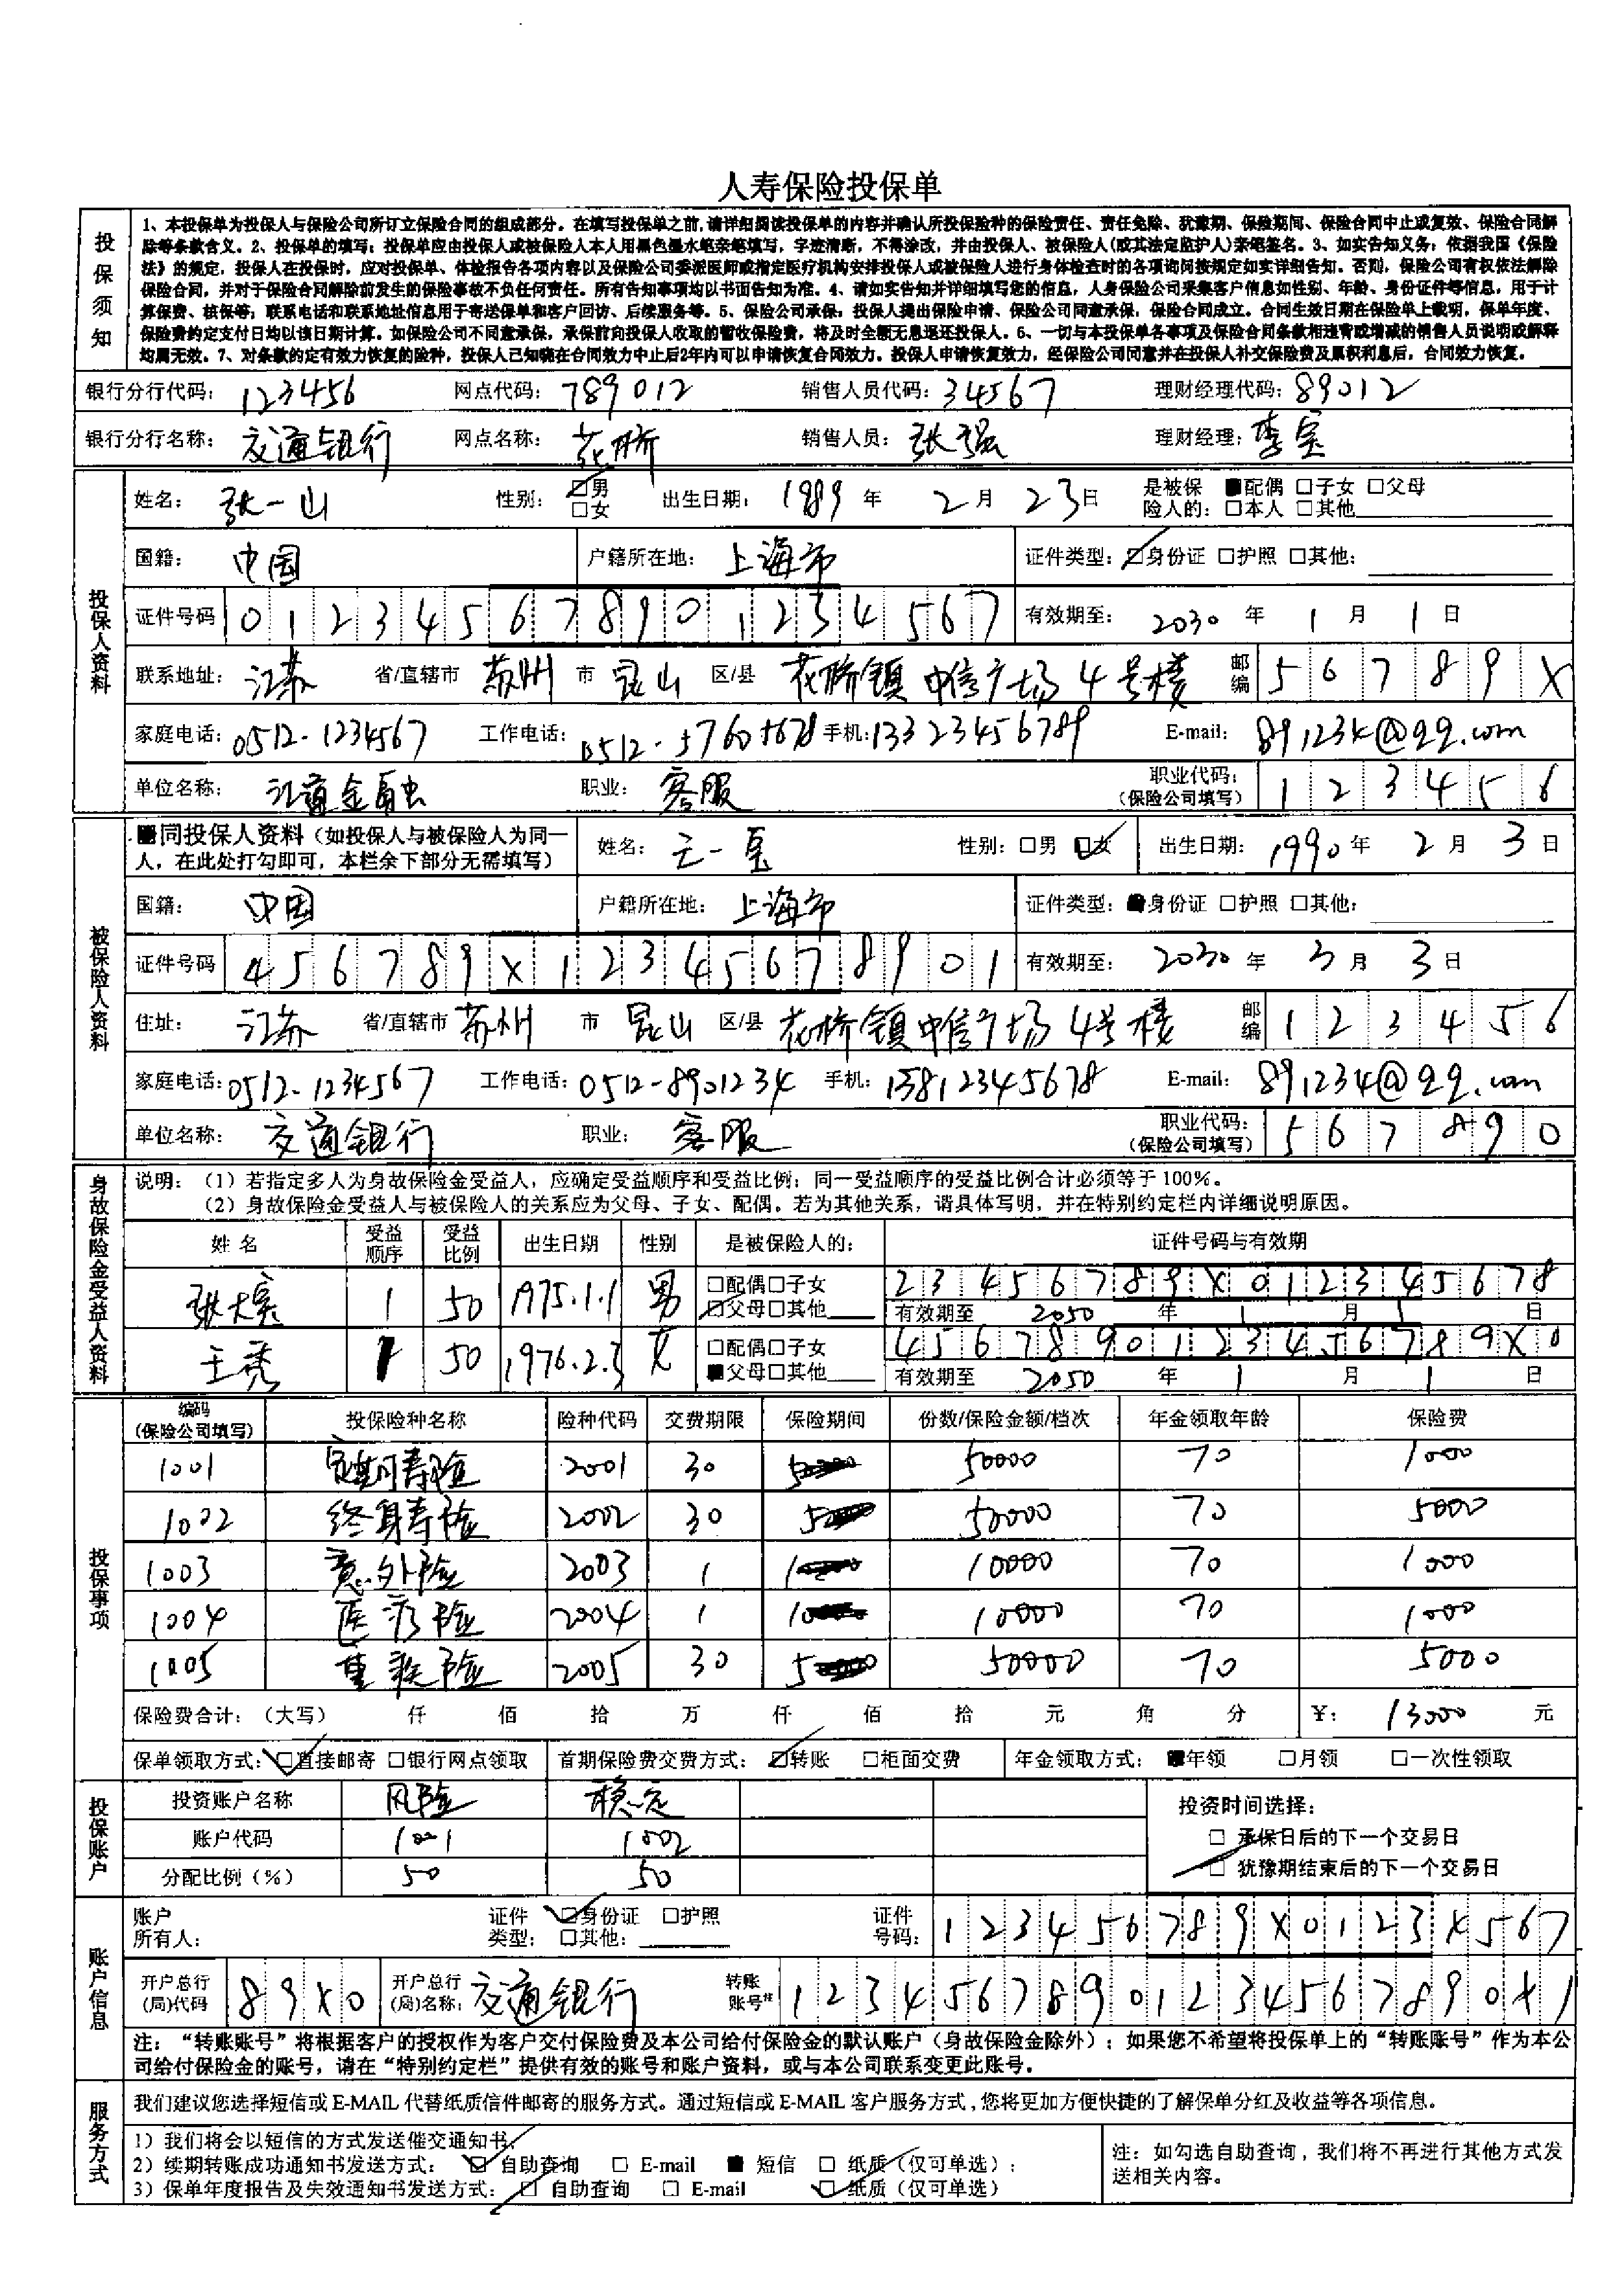 人寿保险投保单
投保须知
1、本投保单为投保人与保险公司所订立保险合同的组成部分。在填写投保单之前,请详细阅读投保单的内容并确认所投保险种的保险责任、责任免除、犹豫期、保险期间、保险合同中止或复效、保险合同解
除等条款含义。2、投保单的填写：投保单应由投保人或被保险人本人用黑色墨水笔亲笔填写，字迹清晰，不得涂改，并由投保人、被保险人(或其法定监护人)亲笔签名。3、如实告知义务：依据我国《保险
法》的规定，投保人在投保时，应对投保单、体检报告各项内容以及保险公司委派医师或指定医疗机构安排投保人或被保险人进行身体检查时的各项询问按规定如实详细告知。否则，保险公司有权依法解除
保险合同，并对于保险合同解除前发生的保险事故不负任何责任。所有告知事项均以书面告知为准。4、请如实告知并详细填写您的信息，人身保险公司采集客户信息如性别、年龄、身份证件等信息，用于计
算保费、核保等；联系电话和联系地址信息用于寄送保单和客户回访、后续服务等。5、保险公司承保：投保人提出保险申请、保险公司同意承保，保险合同成立。合同生效日期在保险单上载明，保单年度、
保险费约定支付日均以该日期计算。如保险公司不同意承保，承保前向投保人收取的暂收保险费，将及时全额无息返还投保人。6、一切与本投保单各事项及保险合同条款相违背或增减的销售人员说明或解释
均属无效。7、对条款约定有效力恢复的险种，投保人已知晓在合同效力中止后2年内可以申请恢复合同效力。投保人申请恢复效力，经保险公司同意并在投保人补交保险费及累积利息后，合同效力恢复。
银行分行代码：123456 网点代码：789012 销售人员代码：34567 理财经理代码：89012
银行分行名称：交通银行 网点名称：花桥 销售人员：张强 理财经理：李宝
投保人资料
姓名：张一山 性别：□男 □女 出生日期：1989年2月23日 是被保险人的：■配偶 □子女 □父母 □本人 □其他
国籍：中国 户籍所在地：上海市 证件类型：□身份证 □护照 □其他：
证件号码 012345678901234567 有效期至：2030年1月1日
联系地址：江苏 省/直辖市 苏州 市 昆山 区/县 花桥镇中信广场4号楼 邮编 56789X
家庭电话：0512-1234567 工作电话：0512-57605678 手机：13323456789 E-mail：891234@qq.com
单位名称：江道金融 职业：客服 职业代码：（保险公司填写）123456
被保险人资料
■同投保人资料（如投保人与被保险人为同一人，在此处打勾即可，本栏余下部分无需填写） 姓名：王一星 性别：□男 □女 出生日期：1990年2月3日
国籍：中国 户籍所在地：上海市 证件类型：■身份证 □护照 □其他：
证件号码 456789X12345678901 有效期至：2030年3月3日
住址：江苏 省/直辖市 苏州 市 昆山 区/县 花桥镇中信广场4号楼 邮编 123456
家庭电话：0512-1234567 工作电话：0512-8901234 手机：13812345678 E-mail：891234@qq.com
单位名称：交通银行 职业：客服 职业代码：（保险公司填写）567890
身故保险金受益人资料
说明：（1）若指定多人为身故保险金受益人，应确定受益顺序和受益比例；同一受益顺序的受益比例合计必须等于100%。
（2）身故保险金受益人与被保险人的关系应为父母、子女、配偶。若为其他关系，请具体写明，并在特别约定栏内详细说明原因。
姓 名 受益顺序 受益比例 出生日期 性别 是被保险人的： 证件号码与有效期
张大宾 1 50 1975.1.1 男 □配偶□子女 □父母□其他 23456789X012345678
有效期至 2050年1月1日
王秀 1 50 1976.2.3 女 □配偶□子女 ■父母□其他 4567890123456789X0
有效期至 2050年1月1日
投保事项
编码（保险公司填写） 投保险种名称 险种代码 交费期限 保险期间 份数/保险金额/档次 年金领取年龄 保险费
1001 定期寿险 2001 30 50000 70 1000
1002 终身寿险 2002 30 50000 70 5000
1003 意外险 2003 1 10000 70 1000
1004 医疗险 2004 1 10000 70 1000
1005 重疾险 2005 30 50000 70 5000
保险费合计：（大写） 仟 佰 拾 万 仟 佰 拾 元 角 分 ¥：13000 元
保单领取方式：□直接邮寄 □银行网点领取 首期保险费交费方式：□转账 □柜面交费 年金领取方式：■年领 □月领 □一次性领取
投保账户
投资账户名称 风险 稳定 投资时间选择：
账户代码 1001 1002 □ 承保日后的下一个交易日
分配比例（%） 50 50 □ 犹豫期结束后的下一个交易日
账户信息
账户所有人： 证件类型：□身份证 □护照 □其他： 证件号码：123456789X0123X567
开户总行(局)代码 89X0 开户总行(局)名称：交通银行 转账账号注 12345678901234567890X1
注：“转账账号”将根据客户的授权作为客户交付保险费及本公司给付保险金的默认账户（身故保险金除外）；如果您不希望将投保单上的“转账账号”作为本公
司给付保险金的账号，请在“特别约定栏”提供有效的账号和账户资料，或与本公司联系变更此账号。
服务方式
我们建议您选择短信或 E-MAIL 代替纸质信件邮寄的服务方式。通过短信或 E-MAIL 客户服务方式，您将更加方便快捷的了解保单分红及收益等各项信息。
1）我们将会以短信的方式发送催交通知书；
2）续期转账成功通知书发送方式：□ 自助查询 □ E-mail ■ 短信 □ 纸质（仅可单选）；
3）保单年度报告及失效通知书发送方式：□ 自助查询 □ E-mail □ 纸质（仅可单选）
注：如勾选自助查询，我们将不再进行其他方式发
送相关内容。